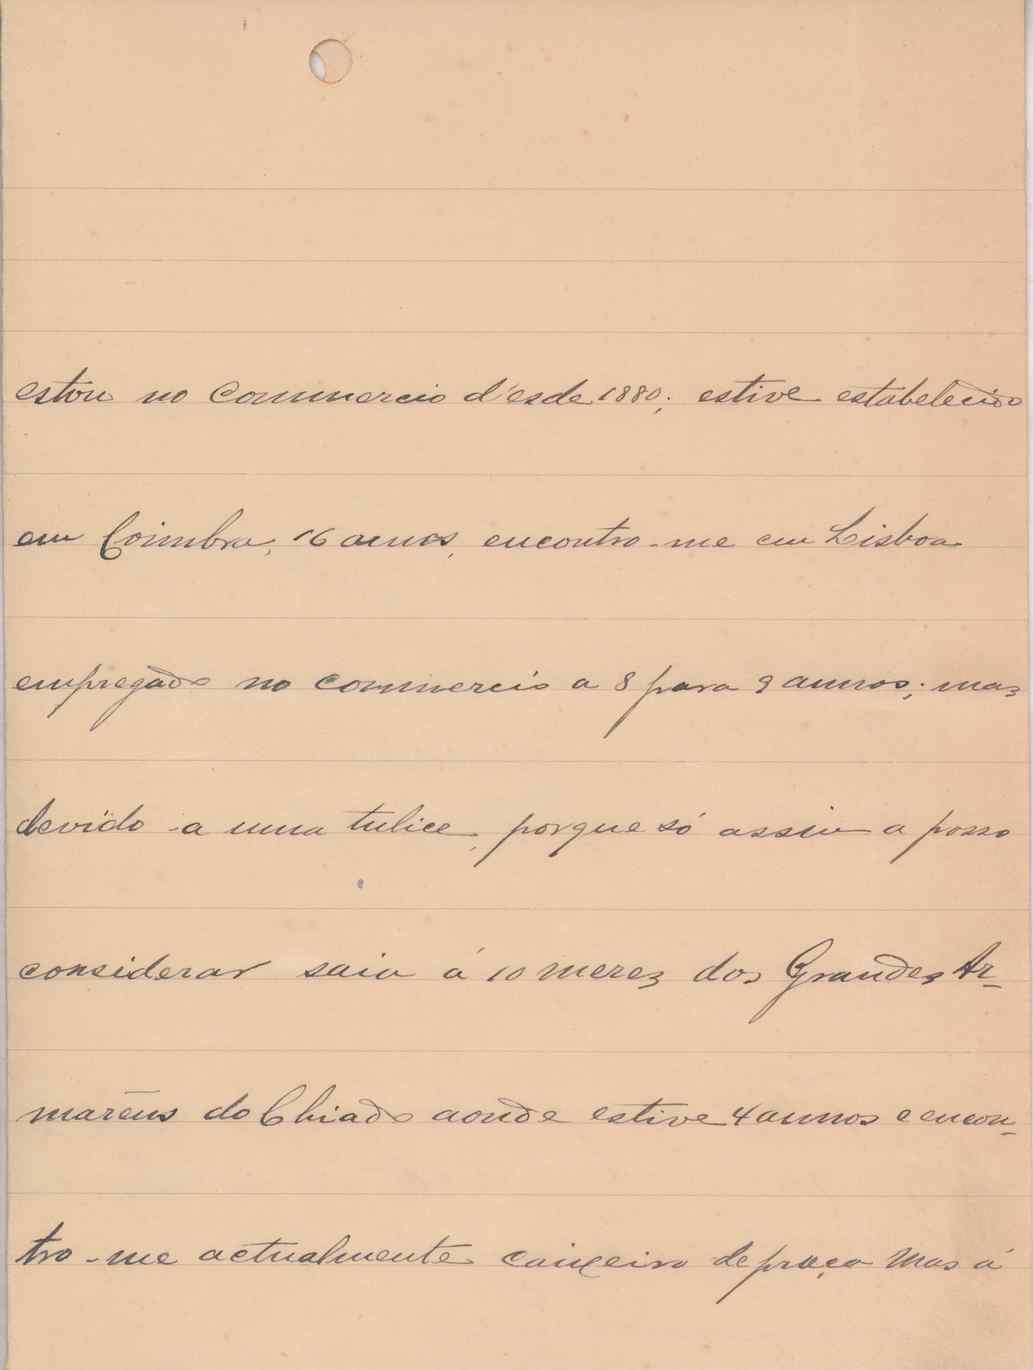 estou no commercio d'esde 1880; estive estabelecido
em Coimbra, 16 annos, encontro-me em Lisboa
empregado no commercio a 8 para 9 annos; mas
devido a uma tulice, porque só assim a posso
considerar saiu á 10 mezes dos Grandes Ar-
mazens do Chiado aonde estive 4 annos e encon-
tro-me actualmente caixeiro de praça mas á